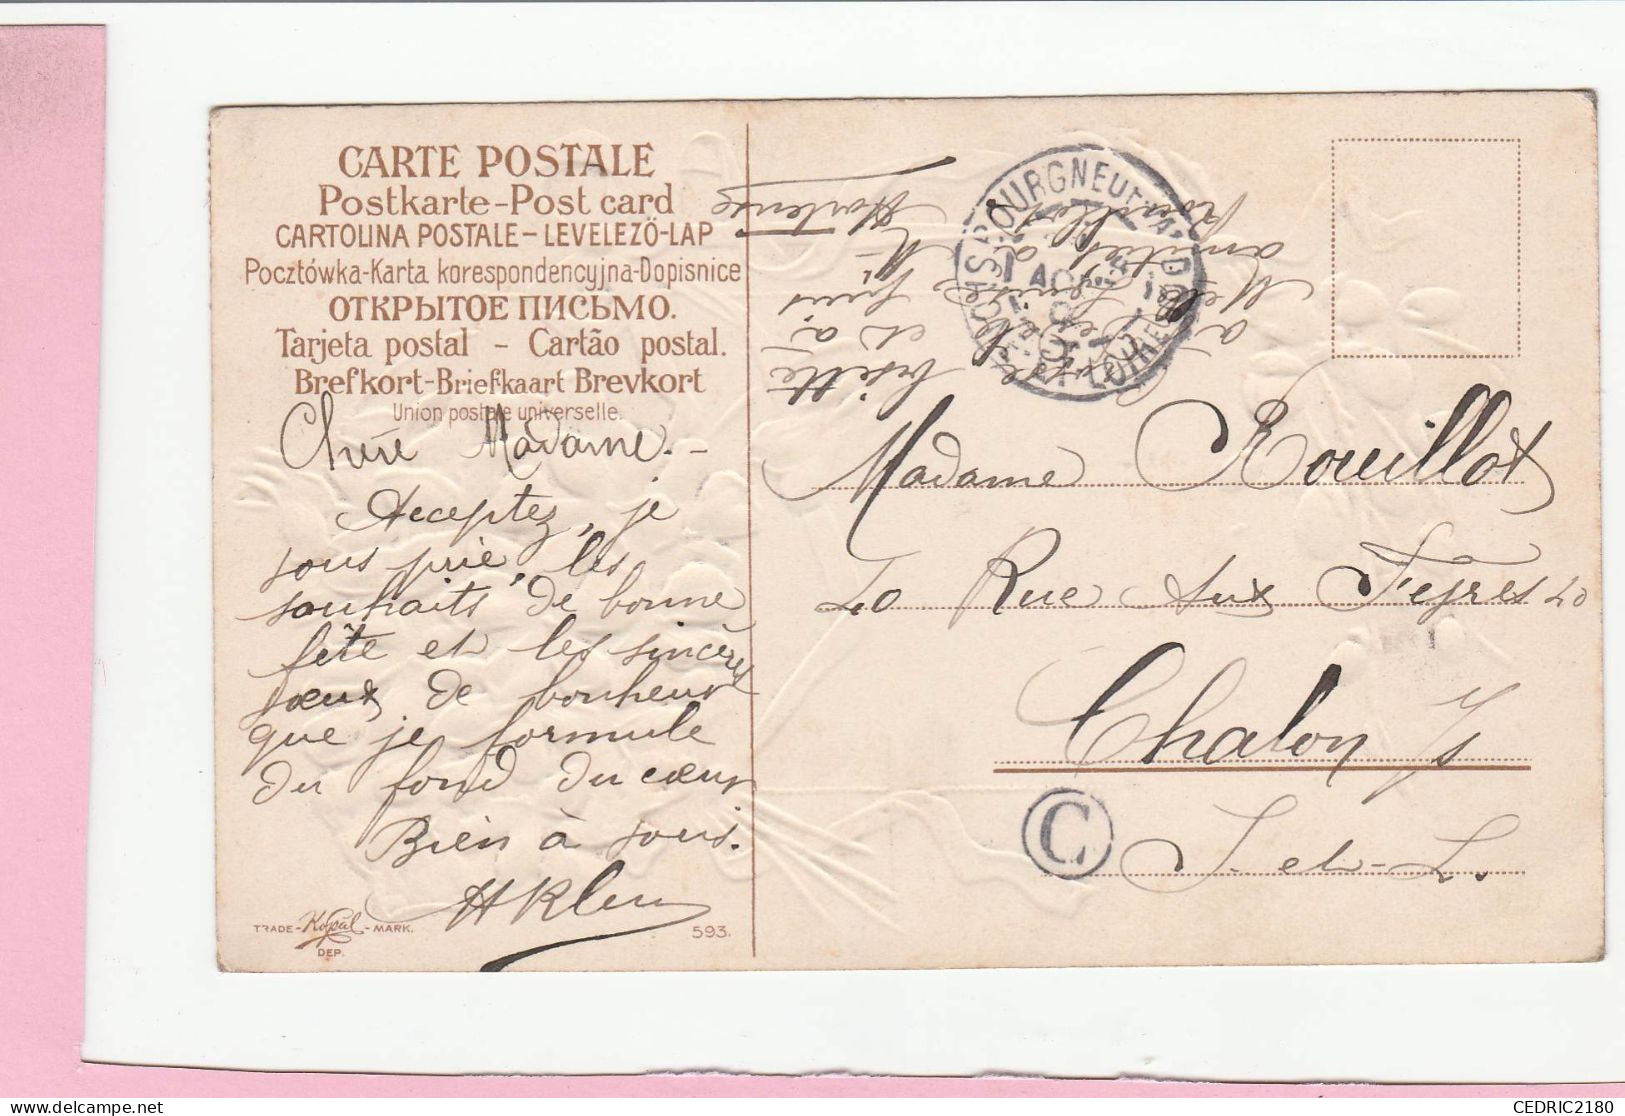 CARTE POSTALE
Postkarte-Post card
CARTOLINA POSTALE-LEVELEZÖ-LAP
Pocztówka-Karta korespondencyjna-Dopisnice
ОТКРЫТОЕ ПИСЬМО.
Tarjeta postal - Cartão postal.
Brefkort-Briefkaart Brevkort
Union postale universelle.
Chère Madame.-
Acceptez, je
vous prie, les
souhaits de bonne
fête et les sincères
vœux de bonheur
que je formule
du fond du cœur
Bien à vous.
HKlein
TRADE-Kopal-MARK.
DEP.
593.
Hortense
amitiés à
Rouillot
a Melle
et à
Madame Rouillot
20 Rue Aux Feyres 20
Chalon s/s
S.-et-L.
C
BOURGNEUF-VAL-D'OR
SAONE-ET-LOIRE
CEDRIC2180